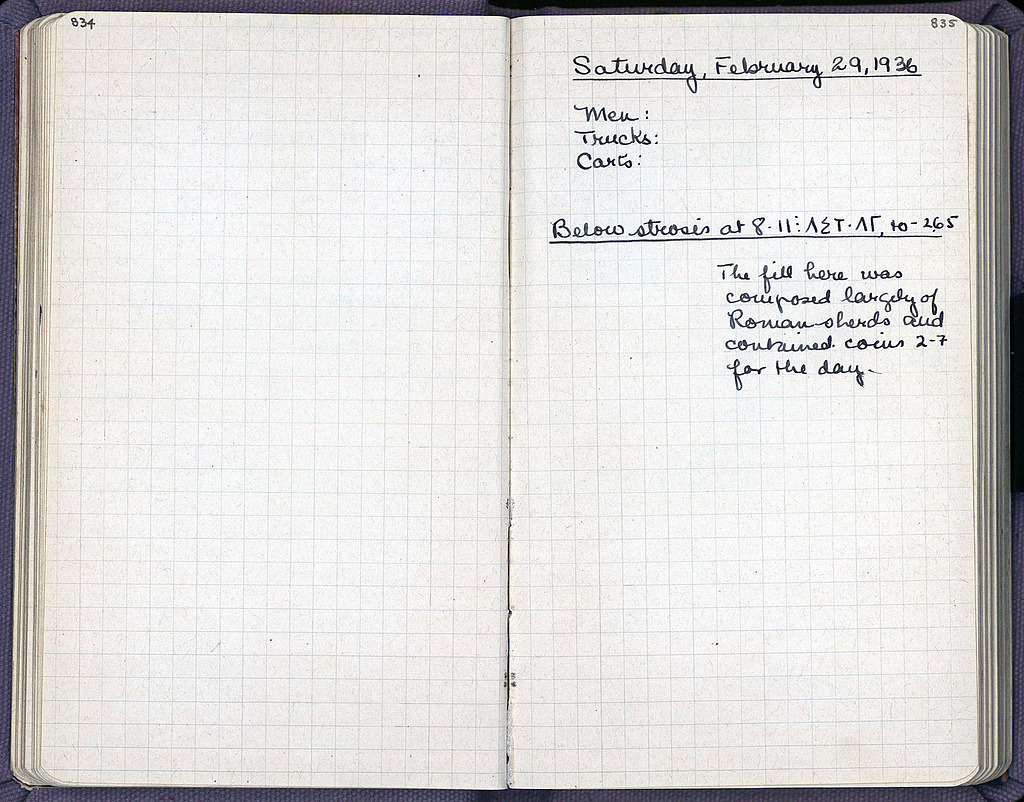 834
835
Saturday, February 29, 1936
Men:
Trucks:
Carts:
Below strosis at 8-11: to -2.65
The fill here was
composed largely of
Roman sherds and
contained coins 2-7
for the day.